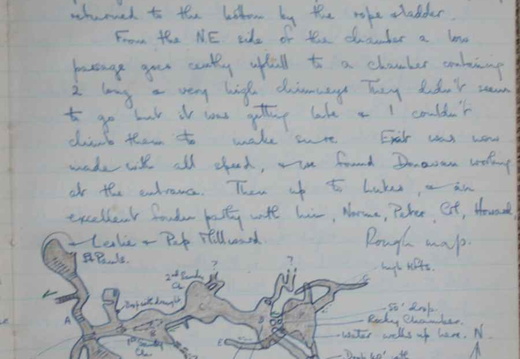 returned to the bottom by the rope & ladder.
From the NE side of the chamber a low
passage goes gently uphill to a chamber containing
2 long & very high chimneys They didn't seem
to go but it was getting late & I couldn't
climb them to make sure Exit was now
made with all speed, & we found Donovan working
at the entrance. Then up to Lukes, &
excellent party with him, Norma, Peter, Howard
Leslie & Pop Millward. Rough map.
St Pauls.
2nd Sandy
Ch.
?
?
high rifts.
55' drop.
Rocky Chamber.
Water wells up here. N.
A
1st Sandy
Ch.
E
Drop 60' with